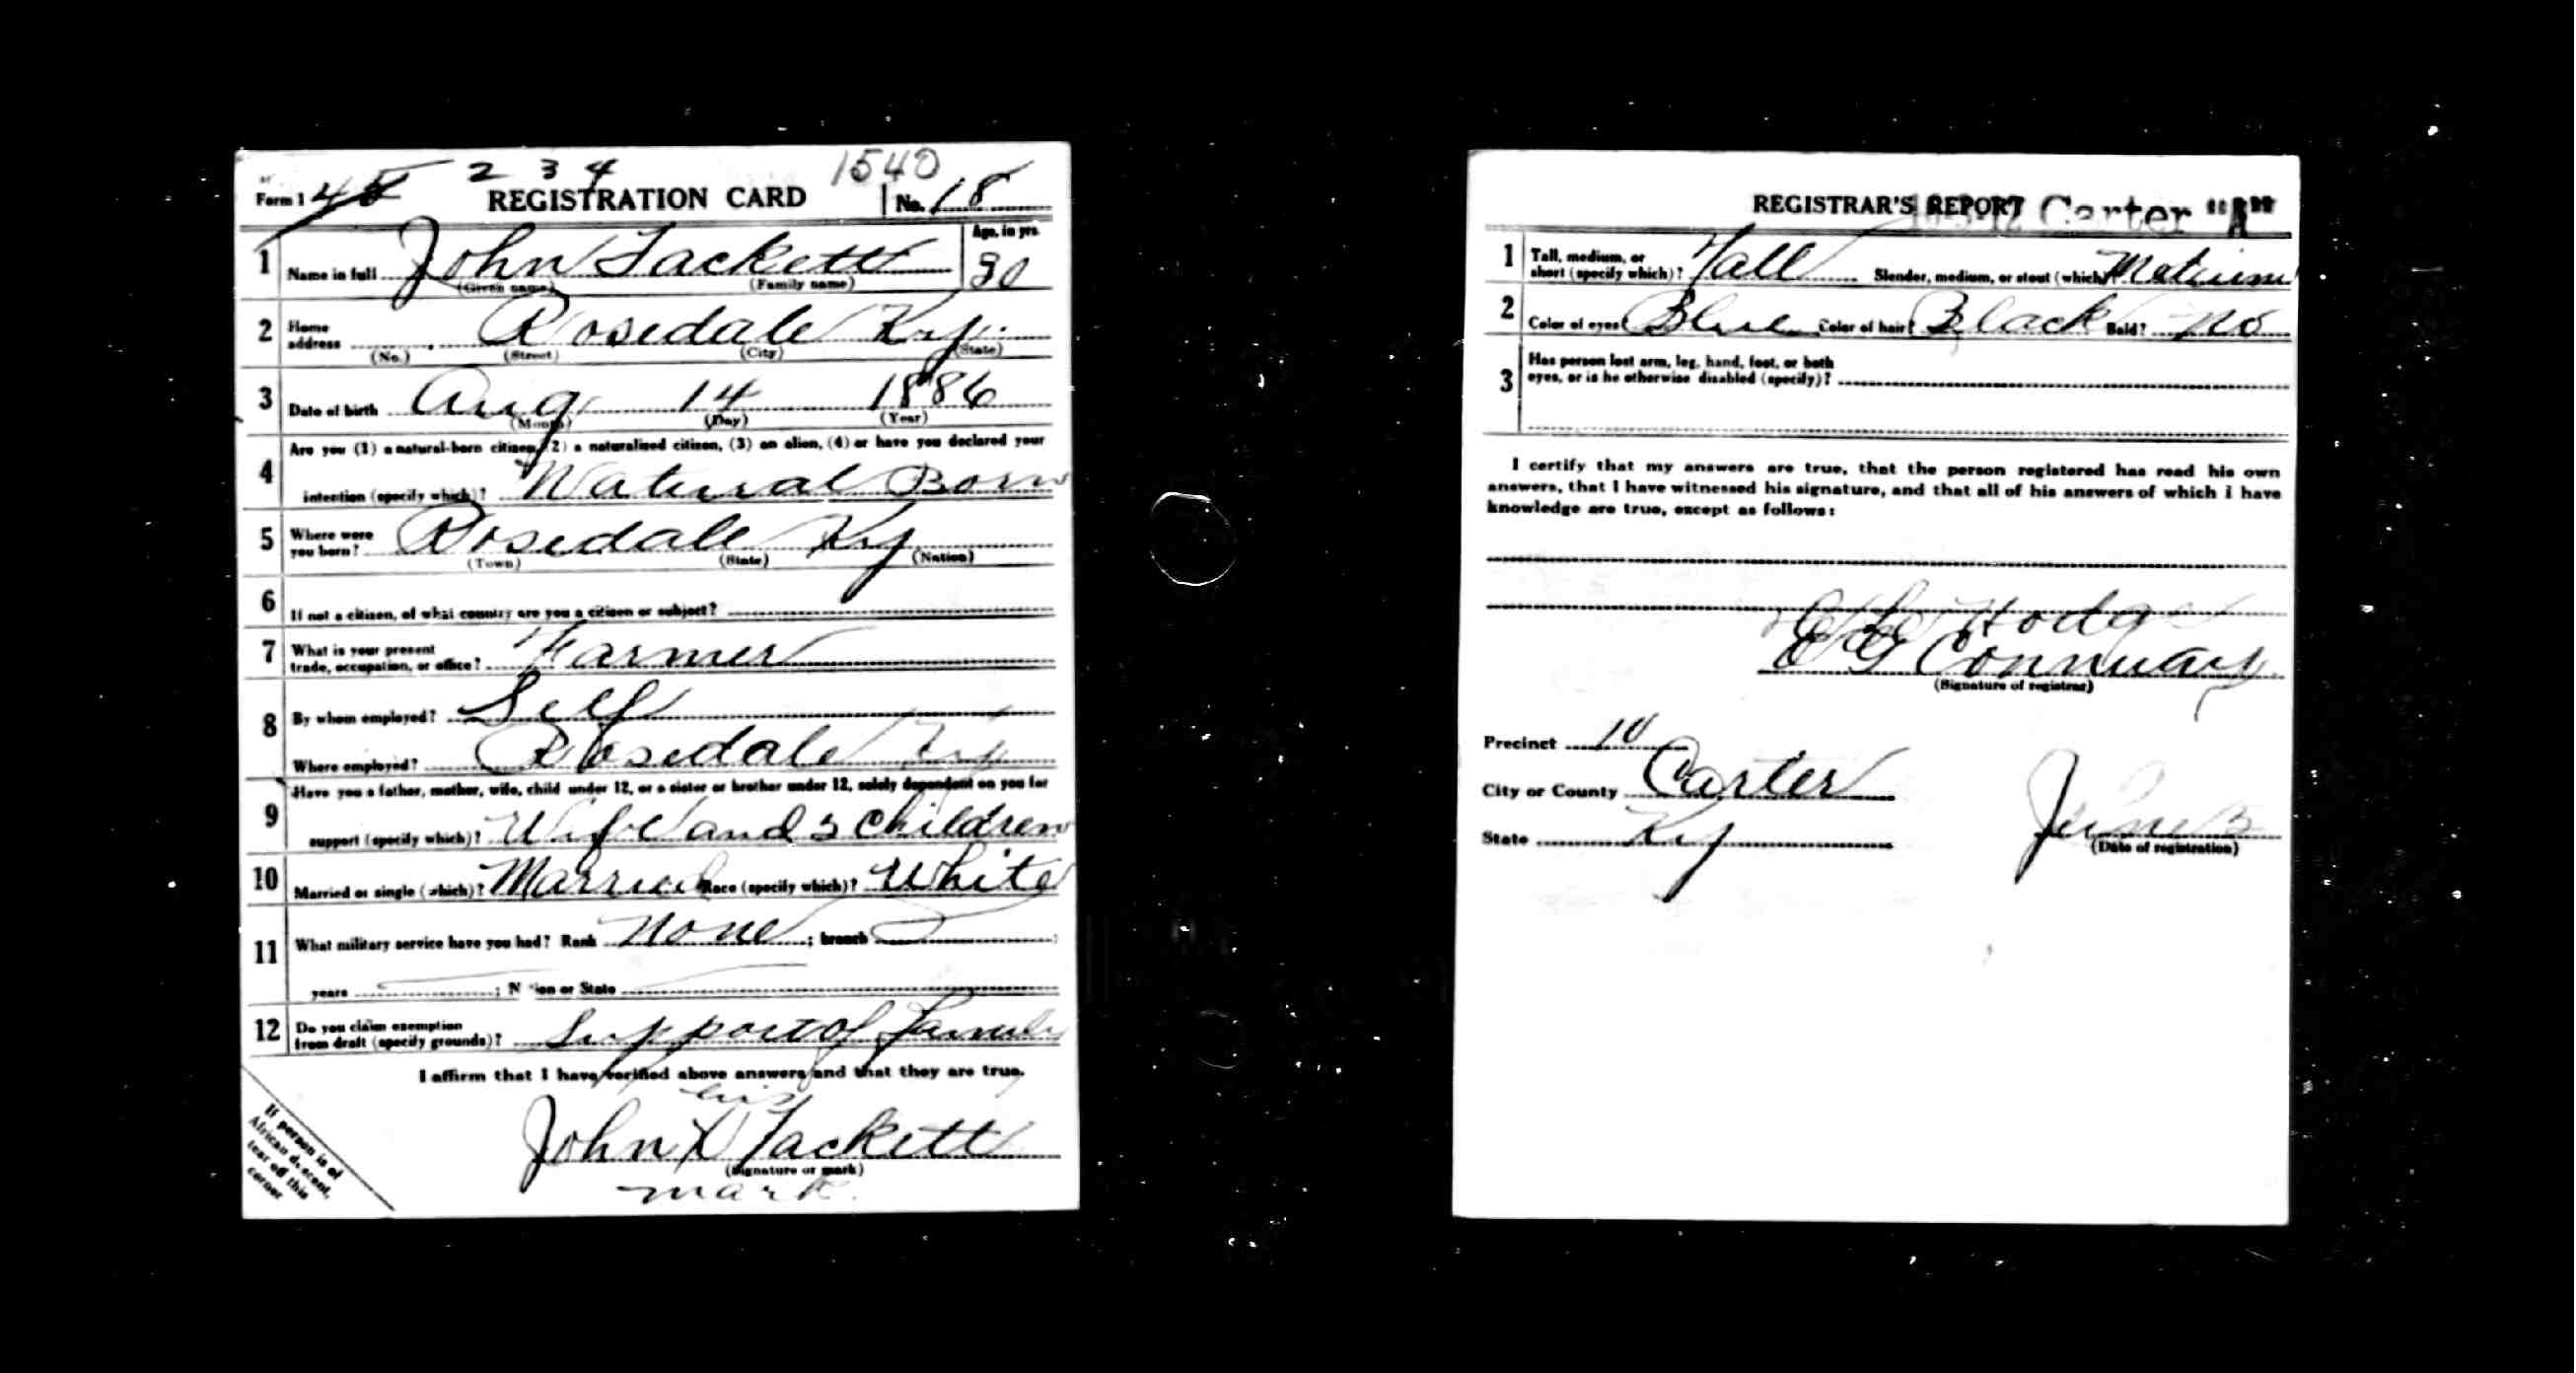 2 3 4 1540
Form 1 REGISTRATION CARD No. 18
1 Name in full John Tackett Age, in yrs. 30
(Given name) (Family name)
2 Home address Rosedale Ky.
(No.) (Street) (City) (State)
3 Date of birth Aug 14 1886
(Month) (Day) (Year)
4 Are you (1) a natural-born citizen, (2) a naturalized citizen, (3) an alien, (4) or have you declared your
intention (specify which)? Natural Born
5 Where were you born? Rosedale Ky
(Town) (State) (Nation)
6 If not a citizen, of what country are you a citizen or subject?
7 What is your present trade, occupation, or office? Farmer
8 By whom employed? Self
Where employed? Rosedale Ky
9 Have you a father, mother, wife, child under 12, or a sister or brother under 12, solely dependent on you for
support (specify which)? Wife and 3 children
10 Married or single (which)? Married Race (specify which)? White
11 What military service have you had? Rank None ; branch
years ; Nation or State
12 Do you claim exemption from draft (specify grounds)? Support of Family
I affirm that I have verified above answers and that they are true.
his
John X Tackett
(Signature or mark)
mark.
If person is of
African descent,
tear off this
corner
REGISTRAR'S REPORT Carter "A"
1 Tall, medium, or short (specify which)? Tall Slender, medium, or stout (which)? Medium
2 Color of eyes? Blue Color of hair? Black Bald? no
3 Has person lost arm, leg, hand, foot, or both
eyes, or is he otherwise disabled (specify)?
I certify that my answers are true, that the person registered has read his own
answers, that I have witnessed his signature, and that all of his answers of which I have
knowledge are true, except as follows:
Hodge
Connuay
(Signature of registrar)
Precinct 10
City or County Carter
State Ky June 5
(Date of registration)